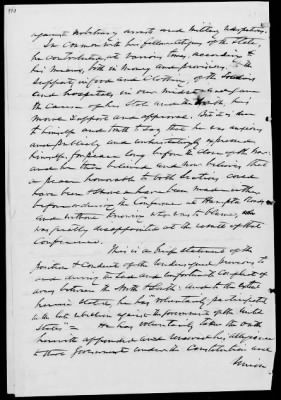 against arbitrary arrests and military usurpation.
In Common with his fellow citizens of the State,
he contributed, at various times, according to
his means, both in money and provisions, to the
support, in food and clothing, of the
and hospitals in our midst, and gave
the cause of his State and the South his
moral support and approval. But it is due
to himself and truth to say that he was anxious
and publicly and expressed
himself, for peace long before the close of the war
and he then believed and now believes that
a peace honorable to both sections could
have been & should have been made either
before or during the Conference at Hampton Roads
and without knowing who was to blame, was
greatly disappointed at the result of that
Conference.
This is a brief statement of the
position & Conduct of the undersigned previous to
and during the sad and unfortunate Conflict of
arms between the North & South. And to the extent
herein stated, he has "voluntarily participated
in the late rebellion against the Government of the United
States" — He has voluntarily taken the oath
herewith appended and renewed his allegiance
to their Government under the Constitution and
Union